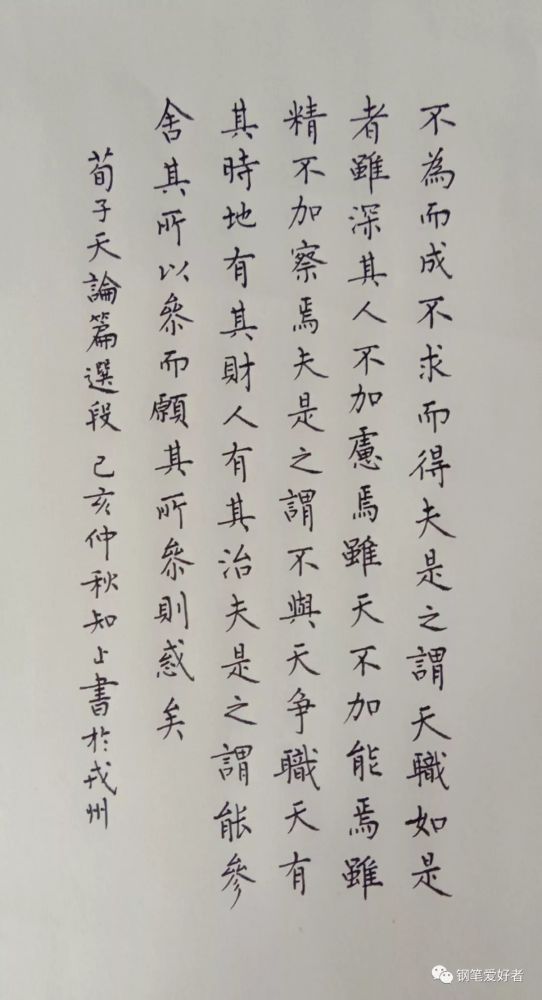 不為而成不求而得夫是之謂天職如是
者雖深其人不加慮焉雖天不加能焉雖
精不加察焉夫是之謂不與天争職天有
其時地有其財人有其治夫是之謂能參
舍其所以參而願其所參則惑矣
荀子天論篇選段 己亥仲秋知上書於戎州
钢笔爱好者